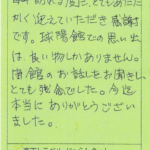 訪れる度に、とてもあたた
かく迎えていただき感謝
です。球陽館での思い出
は、良い物しかありません。
閉館のお話をお聞きし、
とても残念でした。今迄
本当にありがとうござい
ました。